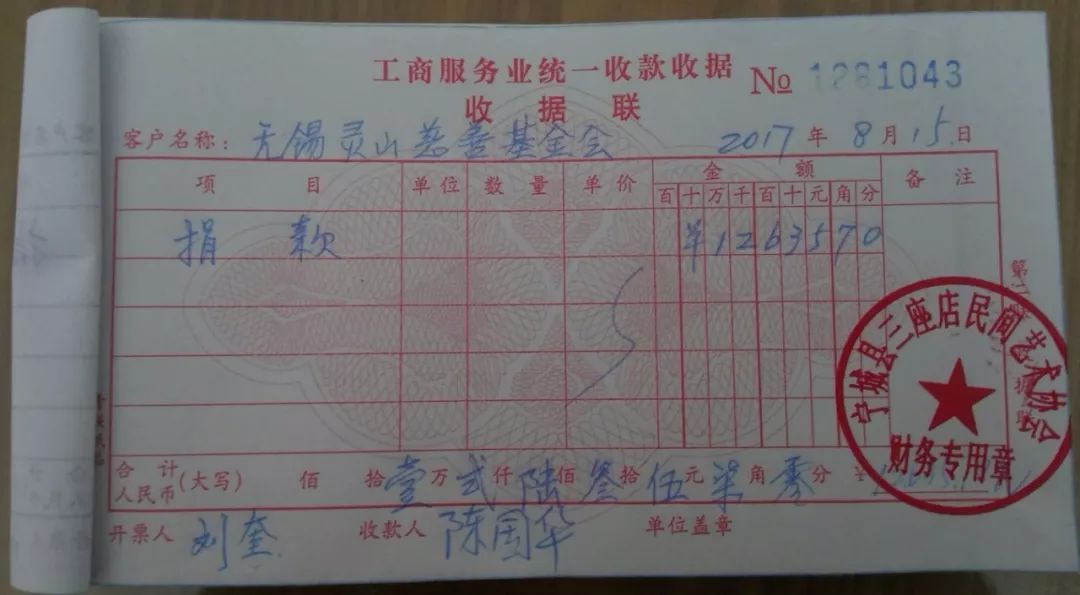 工商服务业统一收款收据
收据联
№ 1281043
客户名称：无锡灵山慈善基金会 2017年8月15日
项目 单位 数量 单价 金额 备注
百十万千百十元角分
捐款 ¥1263570
合计人民币(大写) 佰 拾壹万贰仟陆佰叁拾伍元柒角零分 ¥
开票人 刘奎 收款人 陈国华 单位盖章
宁城县三座店民间艺术协会
财务专用章